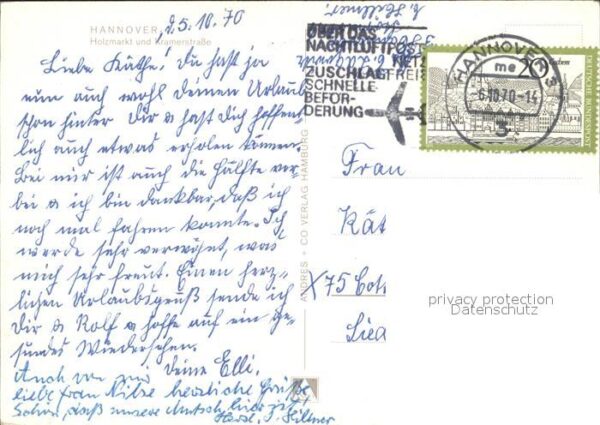 HANNOVER
Holzmarkt und Kramerstraße
d. 5. 10. 70
Liebe Käthe. Du hast ja
nun auch wohl deinen Urlaub
schon hinter Dir & hast Dich hoffent,
lich auch etwas erholen können.
Bei mir ist auch die Hälfte vor,
bei & ich bin dankbar, daß ich
noch mal fahren konnte. Ich
werde sehr verwöhnt, was
mich sehr freut. Einen herz,
lichen Urlaubsgruß sende ich
Dir & Rolf & hoffe auf ein ge,
sundes Wiedersehen.
Deine Elli.
Auch von mir
liebe Frau herzliche Grüße
Schön, daß unsere hier ist
Herzl.
ANDRES + CO VERLAG HAMBURG
ÜBER DAS
NACHTLUFTPOST
NETZ
ZUSCHLAGFREIE
SCHNELLE
BEFÖR-
DERUNG
HANNOVER
me
-6.10.70-14
3
20
DEUTSCHE BUNDESPOST
Frau
Kät
X 75 Cot
Liea
privacy protection
Datenschutz